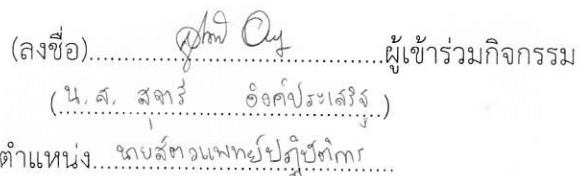 (ลงชื่อ)........................................ผู้เข้าร่วมกิจกรรม
(น.ส. สุจารี                     )
ตำแหน่ง นายสัตวแพทย์ปฏิบัติการ